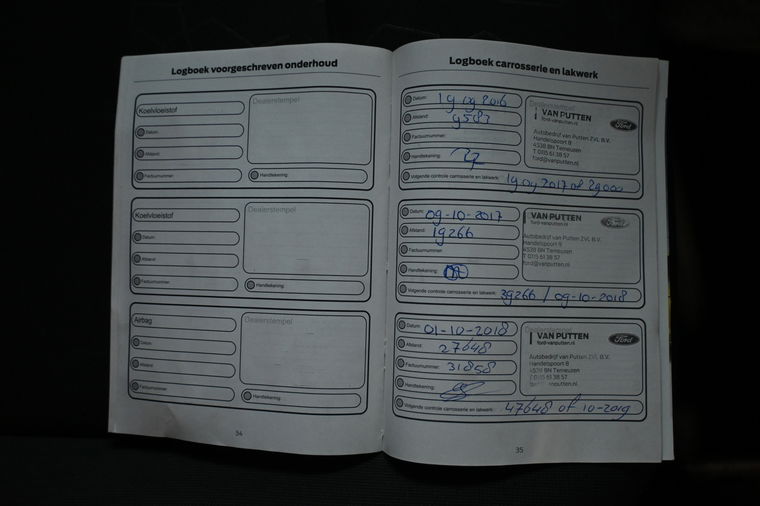 Logboek voorgeschreven onderhoud
Koelvloeistof
Datum:
Afstand:
Factuurnummer:
Dealerstempel
Handtekening:
Koelvloeistof
Datum:
Afstand:
Factuurnummer:
Dealerstempel
Handtekening:
Airbag
Datum:
Afstand:
Factuurnummer:
Dealerstempel
Handtekening:
34
Logboek carrosserie en lakwerk
Datum: 19 09 2016
Afstand: 9583
Factuurnummer:
Handtekening:
Dealerstempel
VAN PUTTEN
ford-vanputten.nl
Ford
Autobedrijf van Putten ZVL B.V.
Handelspoort 8
4538 BN Terneuzen
T 0115 61 38 57
ford@vanputten.nl
Volgende controle carrosserie en lakwerk: 19 09 2017 of 29000
Datum: 09-10-2017
Afstand: 19266
Factuurnummer:
Handtekening:
VAN PUTTEN
ford-vanputten.nl
Ford
Autobedrijf van Putten ZVL B.V.
Handelspoort 8
4538 BN Terneuzen
T 0115 61 38 57
ford@vanputten.nl
Volgende controle carrosserie en lakwerk: 39266 / 09-10-2018
Datum: 01-10-2018
Afstand: 27648
Factuurnummer: 31858
Handtekening:
Dealerstempel
VAN PUTTEN
ford-vanputten.nl
Ford
Autobedrijf van Putten ZVL B.V.
Handelspoort 8
4538 BN Terneuzen
T 0115 61 38 57
Volgende controle carrosserie en lakwerk: 47648 of 10-2019
35